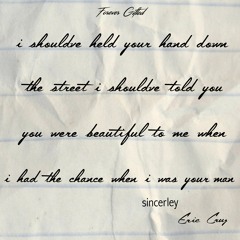 Forever Gifted
i shouldve held your hand down
the street i shouldve told you
you were beautiful to me when
i had the chance when i was your man
sincerley
Eric Cruz